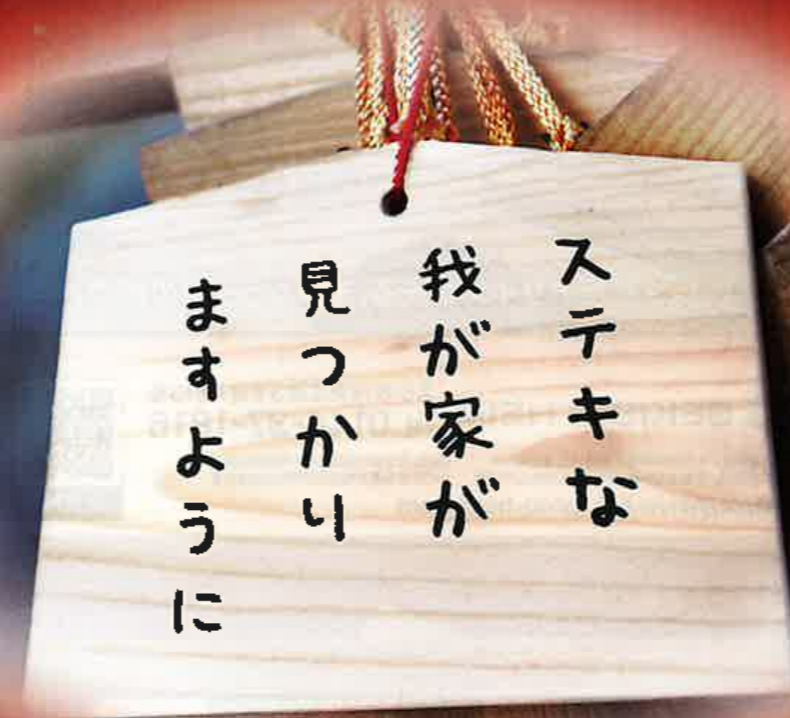 ステキな
我が家が
見つかり
ますように